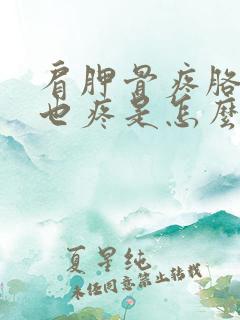 肩胛骨疼胳
也疼是怎麼
夏星纯
未经同意禁止转载